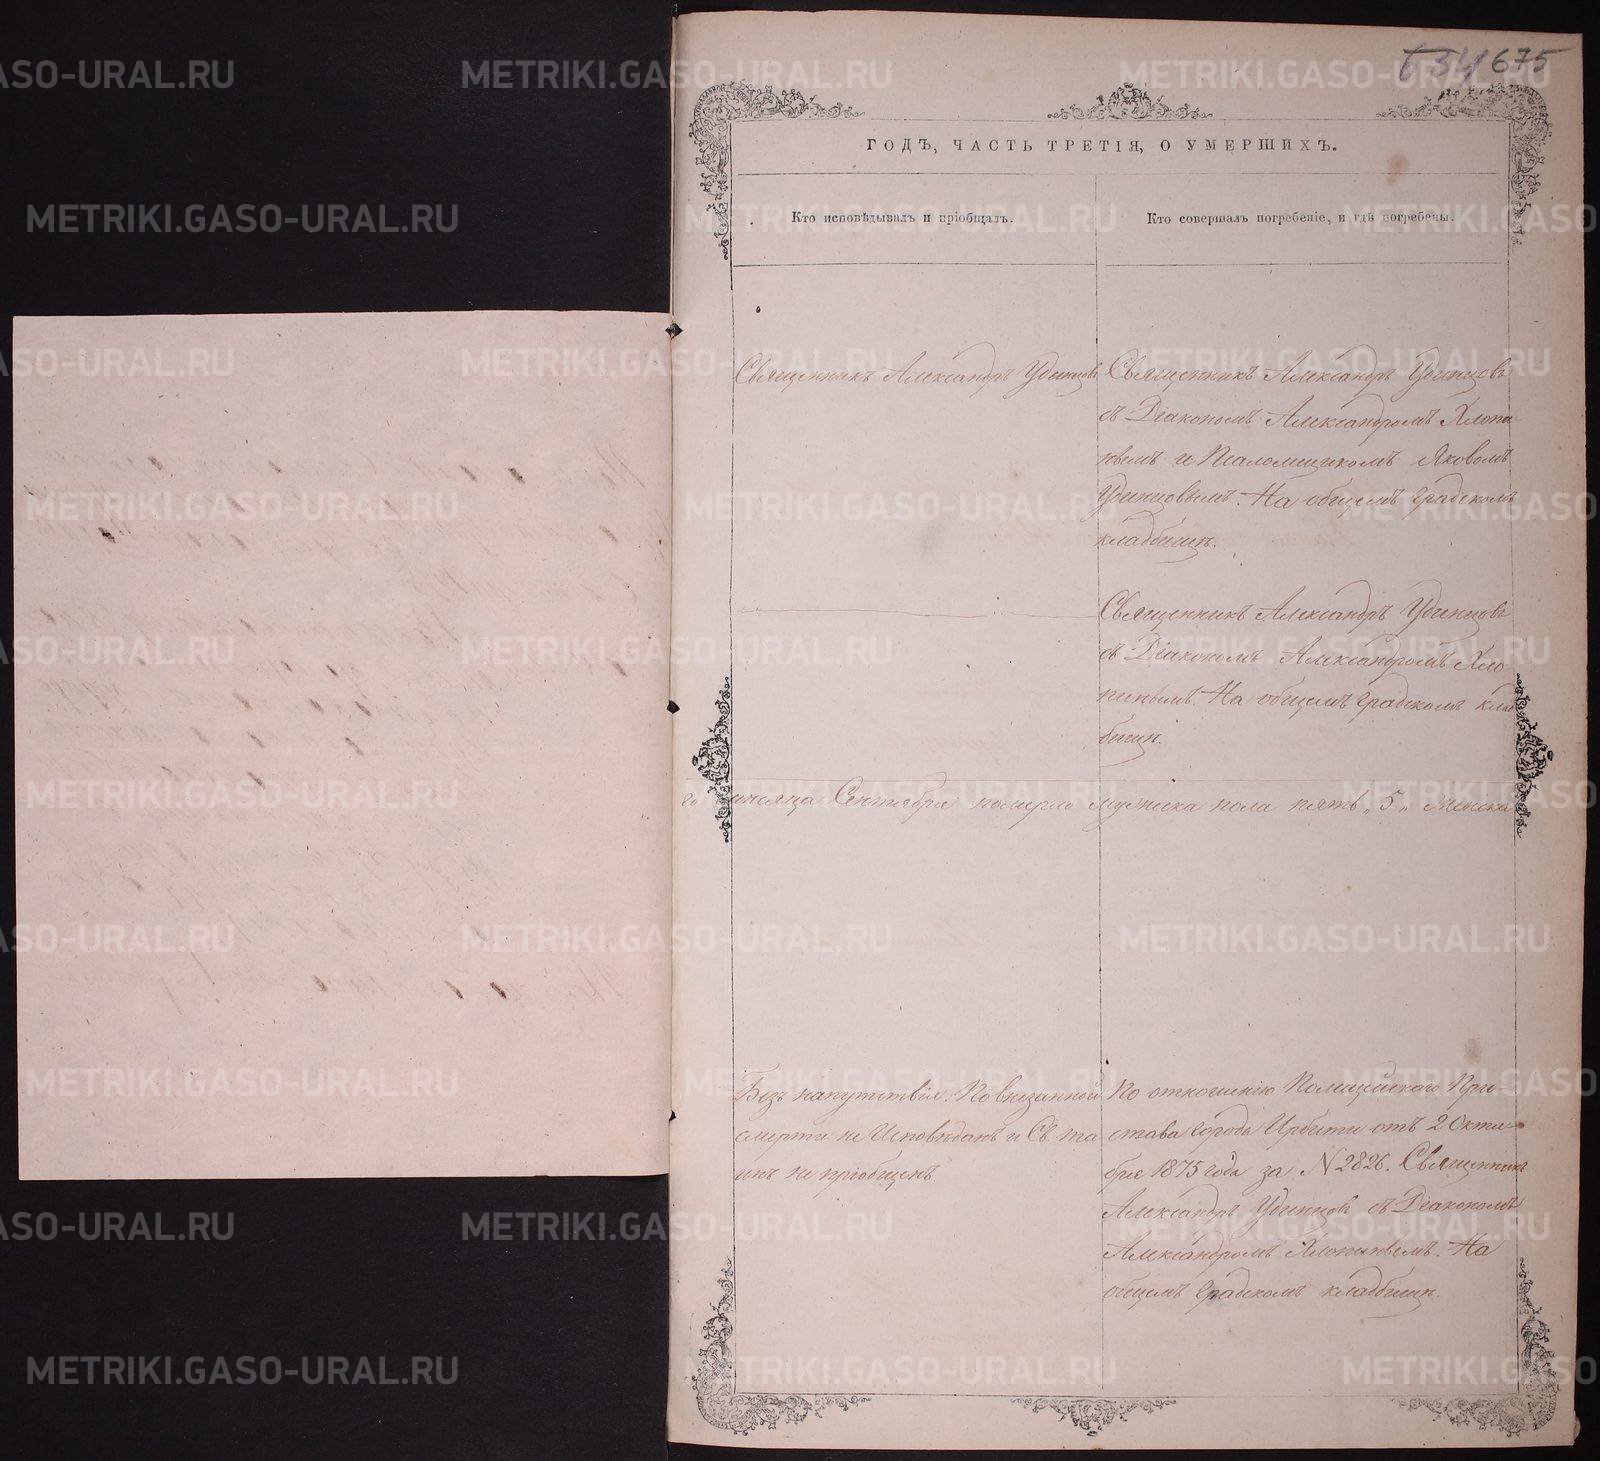 675
ГОДЪ, ЧАСТЬ ТРЕТІЯ, О УМЕРШИХЪ.
Кто исповѣдывалъ и пріобщалъ.
Кто совершалъ погребеніе, и гдѣ погребены.
Священникъ Александръ Удинцовъ
Священникъ Александръ Удинцовъ
съ Діакономъ Александромъ Хлопи-
невымъ и Псаломщикомъ Яковомъ
Удинцовымъ. На общемъ градскомъ
кладбищѣ.
Священникъ Александръ Удинцовъ
съ Діакономъ Александромъ Хло-
пиневымъ. На общемъ градскомъ клад
бищѣ.
го мѣсяца Сентября померло мужеска пола пять „5„ Женска
Безъ напутствія. По внезапной
смерти не Исповѣданъ и Св. та
инъ не пріобщенъ.
По отношенію Полицейскаго При-
става города Ирбити отъ 2 Октя-
бря 1875 года за N 2826. Священникъ
Александръ Удинцовъ съ Діакономъ
Александромъ Хлопиневымъ. На
общемъ градскомъ кладбищѣ.
METRIKI.GASO-URAL.RU